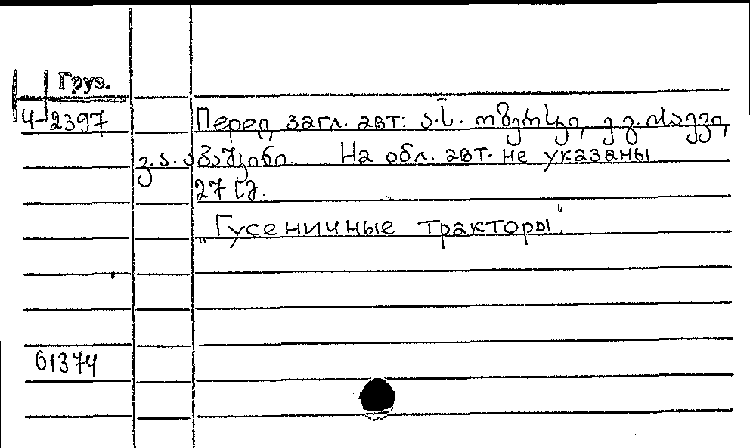 Груз.
4-2397
Перед загл. авт: ა.ს.
На обл. авт. не указаны
27 см.
"Гусеничные тракторы"
61374